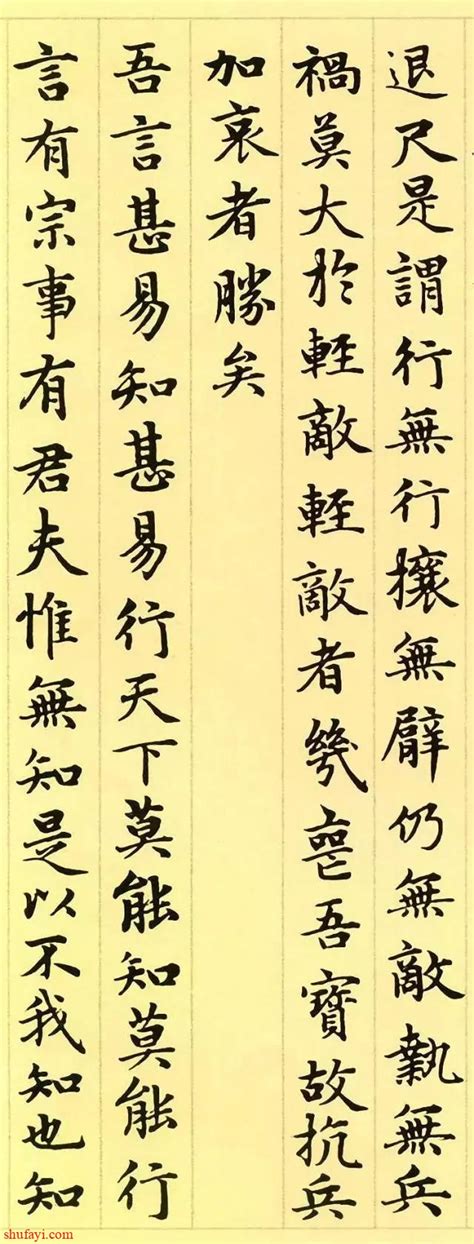 退尺是謂行無行攘無臂仍無敵執無兵
禍莫大於輕敵輕敵者幾喪吾寶故抗兵
加哀者勝矣
吾言甚易知甚易行天下莫能知莫能行
言有宗事有君夫惟無知是以不我知也知
shufayi.com